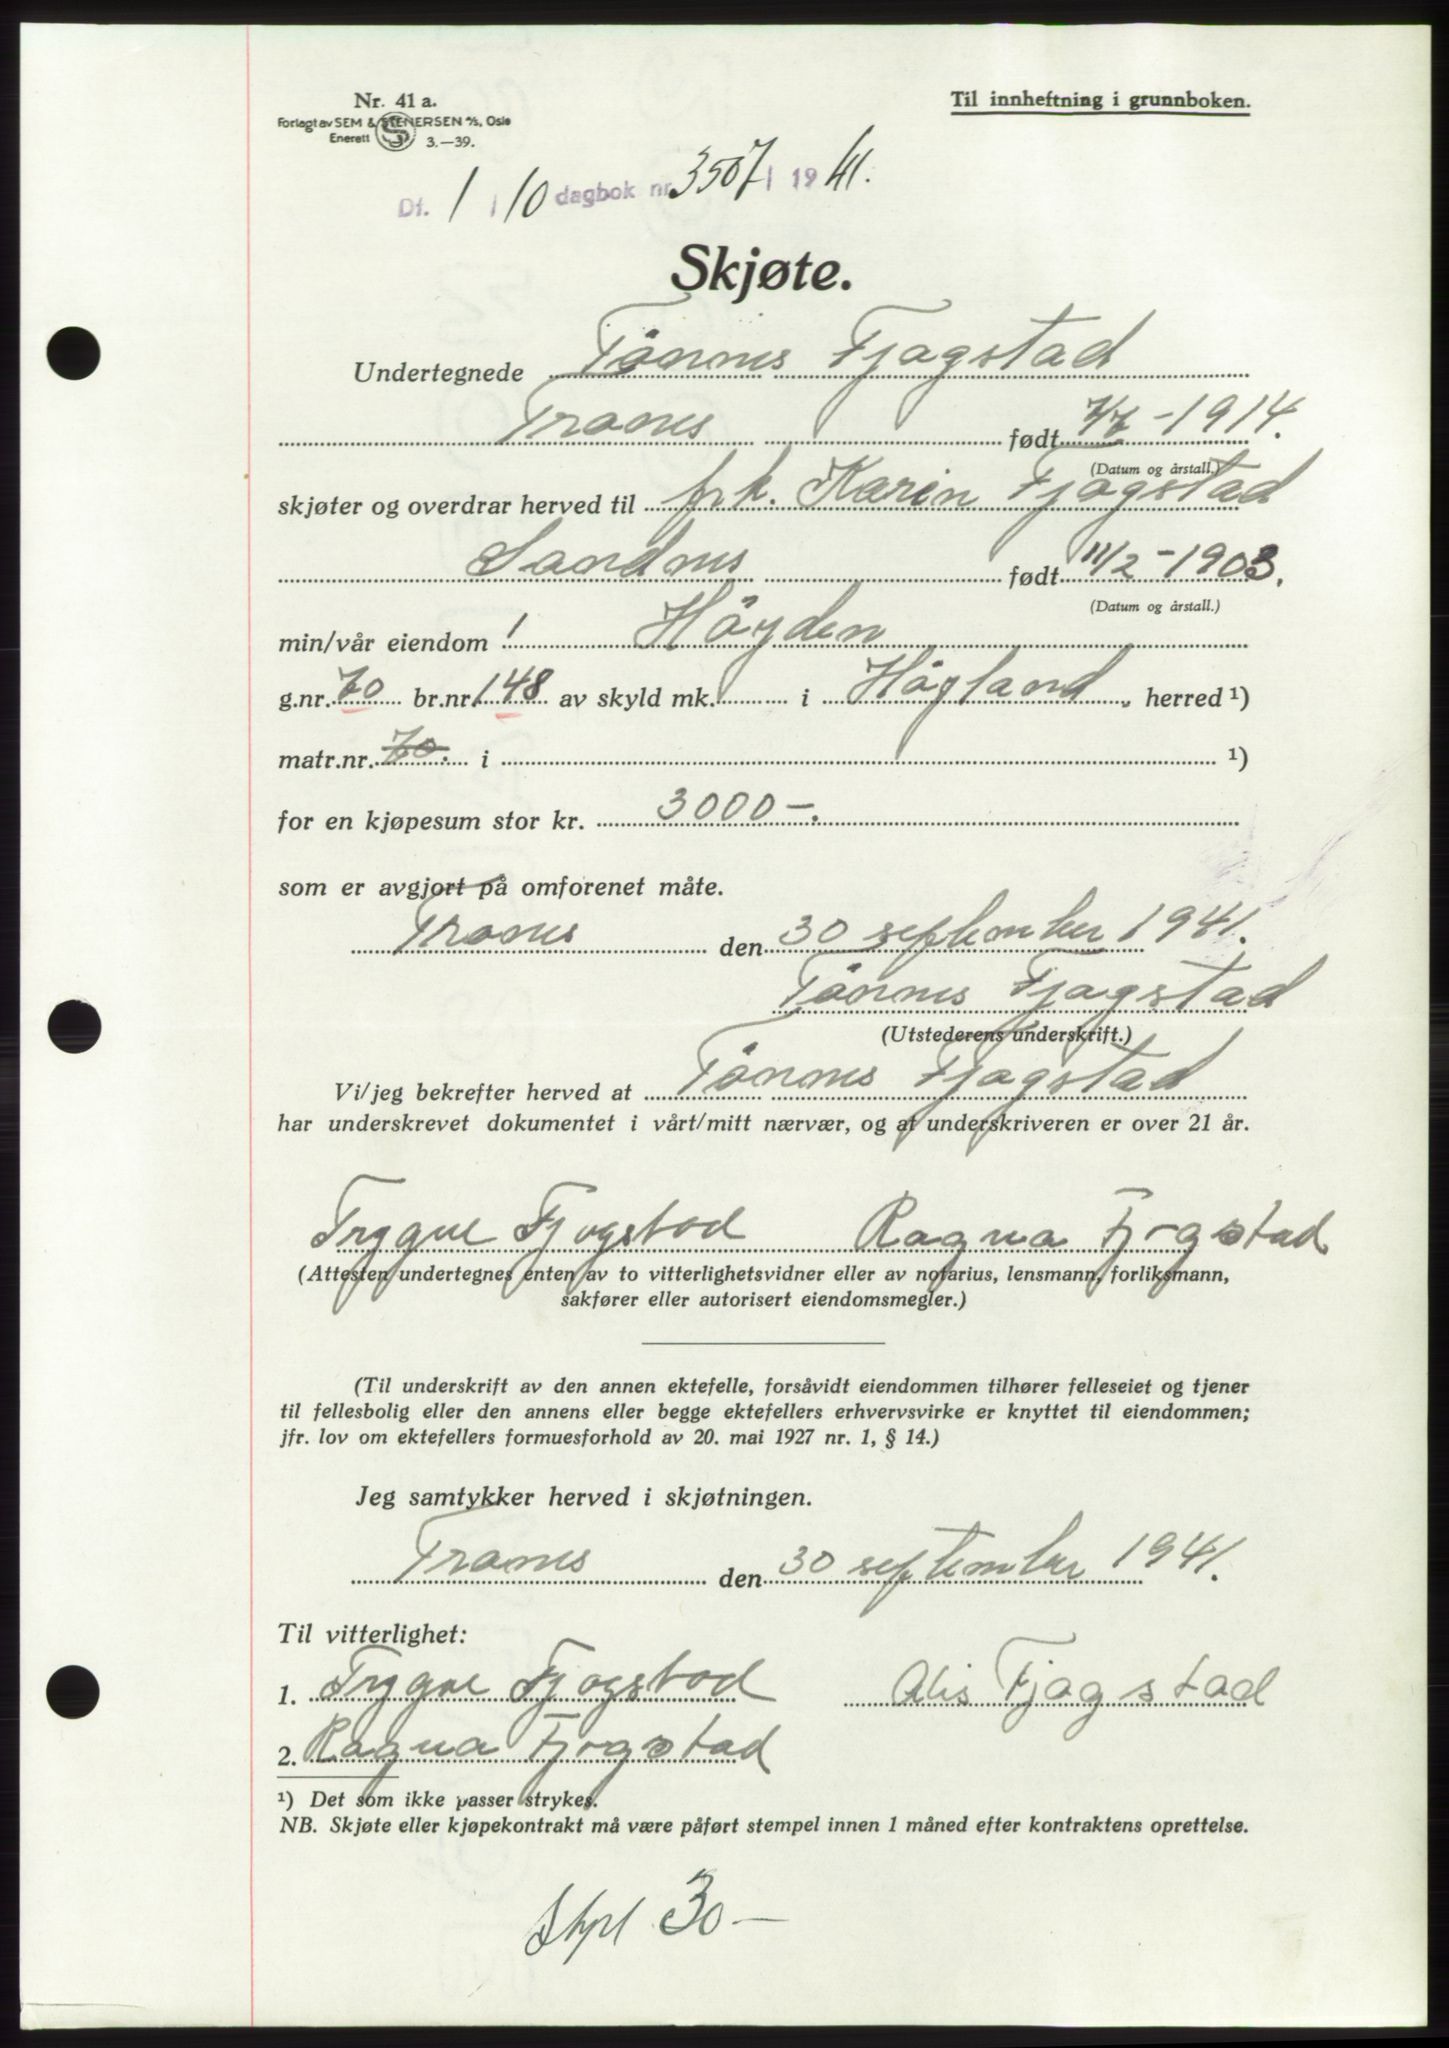 Nr. 41 a.
Forlagt av SEM & STENERSEN A/S, Oslo
Enerett 3.—39.
Til innheftning i grunnboken.
Df. 1 / 10 dagbok nr 3507 / 1941.
Skjøte.
Undertegnede Tönnes Fjogstad
Trones født 7/7 - 1914.
(Datum og årstall.)
skjøter og overdrar herved til frk. Karin Fjogstad
Sandnes født 11/2 - 1903.
(Datum og årstall.)
min/vår eiendom 1 Höyden
g.nr. 70 br.nr. 148 av skyld mk. i Högland herred ¹)
matr.nr. 70. i ¹)
for en kjøpesum stor kr. 3000-.
som er avgjort på omforenet måte.
Trones den 30 september 1941.
Tönnes Fjogstad
(Utstederens underskrift.)
Vi/jeg bekrefter herved at Tönnes Fjogstad
har underskrevet dokumentet i vårt/mitt nærvær, og at underskriveren er over 21 år.
Trygve Fjogstad Ragna Fjogstad
(Attesten undertegnes enten av to vitterlighetsvidner eller av notarius, lensmann, forliksmann,
sakfører eller autorisert eiendomsmegler.)
(Til underskrift av den annen ektefelle, forsåvidt eiendommen tilhører felleseiet og tjener
til fellesbolig eller den annens eller begge ektefellers erhvervsvirke er knyttet til eiendommen;
jfr. lov om ektefellers formuesforhold av 20. mai 1927 nr. 1, § 14.)
Jeg samtykker herved i skjøtningen.
Trones den 30 september 1941.
Til vitterlighet:
1. Trygve Fjogstad Alis Fjogstad
2. Ragna Fjogstad
¹) Det som ikke passer strykes.
NB. Skjøte eller kjøpekontrakt må være påført stempel innen 1 måned efter kontraktens oprettelse.
30 —